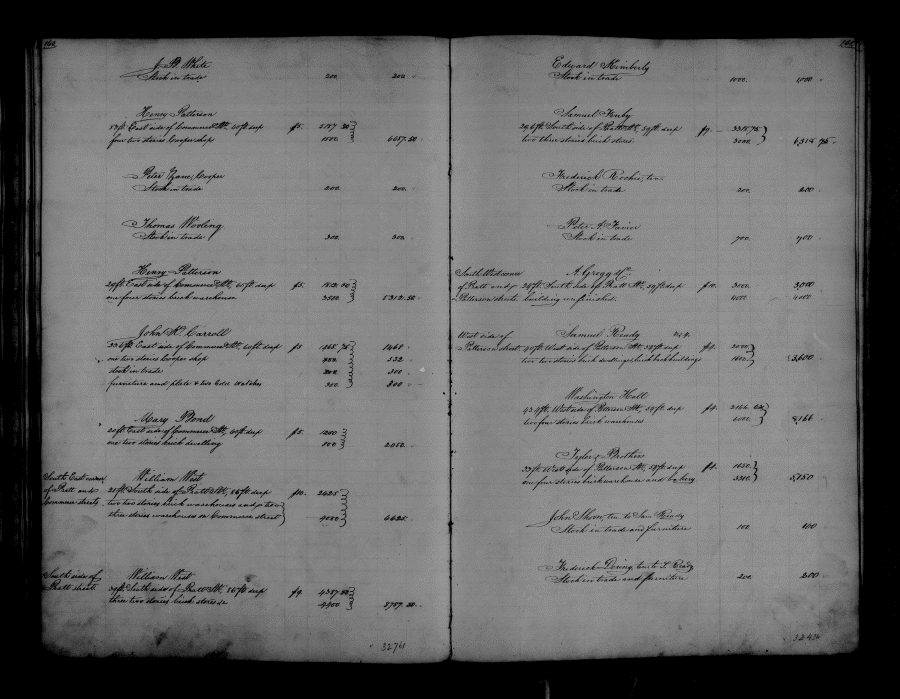 J. B. White
Stock in trade 200 200
Henry Patterson
53 ft East side of Commerce St, 60 ft deep f5. 5157.50
four two stories Cooper shop 1500 6657.50
Peter Zane, Cooper
Stock in trade 200 200
Thomas Wooling
Stock in trade 300 300
Henry Patterson
29 ft East side of Commerce St, 65 ft deep f5 1812.50
one four stories brick warehouse 3500 5312.50
John H. Carroll
33.6 ft East side of Commerce St, 60 ft deep f5 1468.75 1468
one two stories Cooper shop 532
stock in trade 300
furniture and plate & two Gold Watches 300 300
Mary Bond
20 ft East side of Commerce St, 60 ft deep f5. 1250
one two stories brick dwelling 800 2050
South East corner William West
of Pratt and South side of Pratt St, ft deep f10. 2625
Commerce streets two two stories brick warehouses and two
three stories warehouses on Commerce street 4000 6625
South side of William West
Pratt street. 39 ft South side of Pratt St, ft deep f9. 4387.50
three two stories brick stores &c 4400 8787.50
32761
Edward Kimberly
Stock in trade 1000 1000
Samuel Kirby
29.6 ft South side of Pratt St, 59 ft deep f9. 3315.75
two three stories brick stores 3000 6,315.75
Frederick Roche, ten
Stock in trade 200 200
Peter A. Favier
Stock in trade 900 900
South West corner A. Gregg
of Pratt and 26 ft South side of Pratt St, 59 ft deep f10. 3000 3,000
Patterson streets. building unfinished. 4000 4000
West side of Samuel Ready
Patterson street. 45 ft West side of Patterson St, 58 ft deep f9. 2000
two two stories brick dwellings, brick back buildings 1600 3,600
Washington Hall
43.4 ft West side of Patterson St, 58 ft deep f9. 2166
two four stories brick warehouses 6000 8,166
Tyler & Brothers
33 ft West side of Patterson St, 58 ft deep f9. 1650
one four stories brick warehouse and 3500 5,150
John Thom, ten to Sam Ready
Stock in trade and furniture 100 100
Frederick Dering, ten to S. Ready
Stock in trade and furniture 200 200